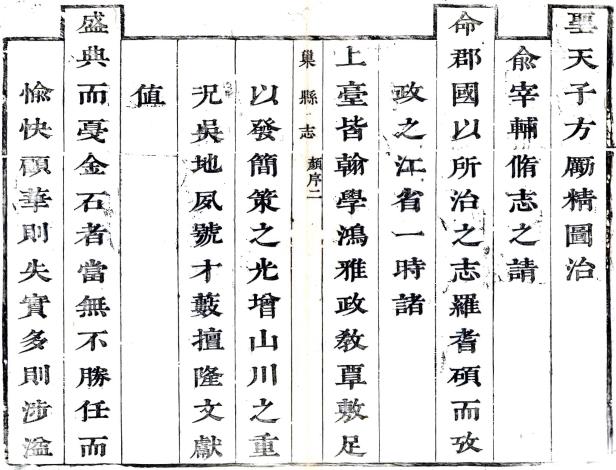 聖天子方勵精圖治
俞宰輔脩志之請
命郡國以所治之志羅耆碩而攷
政之江省一時諸
上臺皆翰學鴻雅政敎覃敷足
巢縣志 顏序二
以發簡策之光增山川之重
况吳地夙號才藪擅隆文獻
値
盛典而戞金石者當無不勝任而
愉快碩華則失實多則涉濫